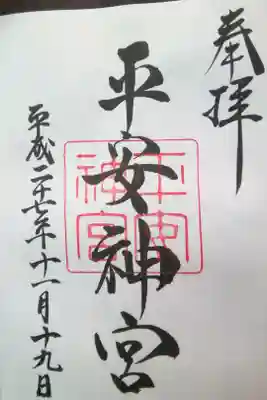 奉拝
平安神宮
平安神宮
平成二十七年十一月十九日